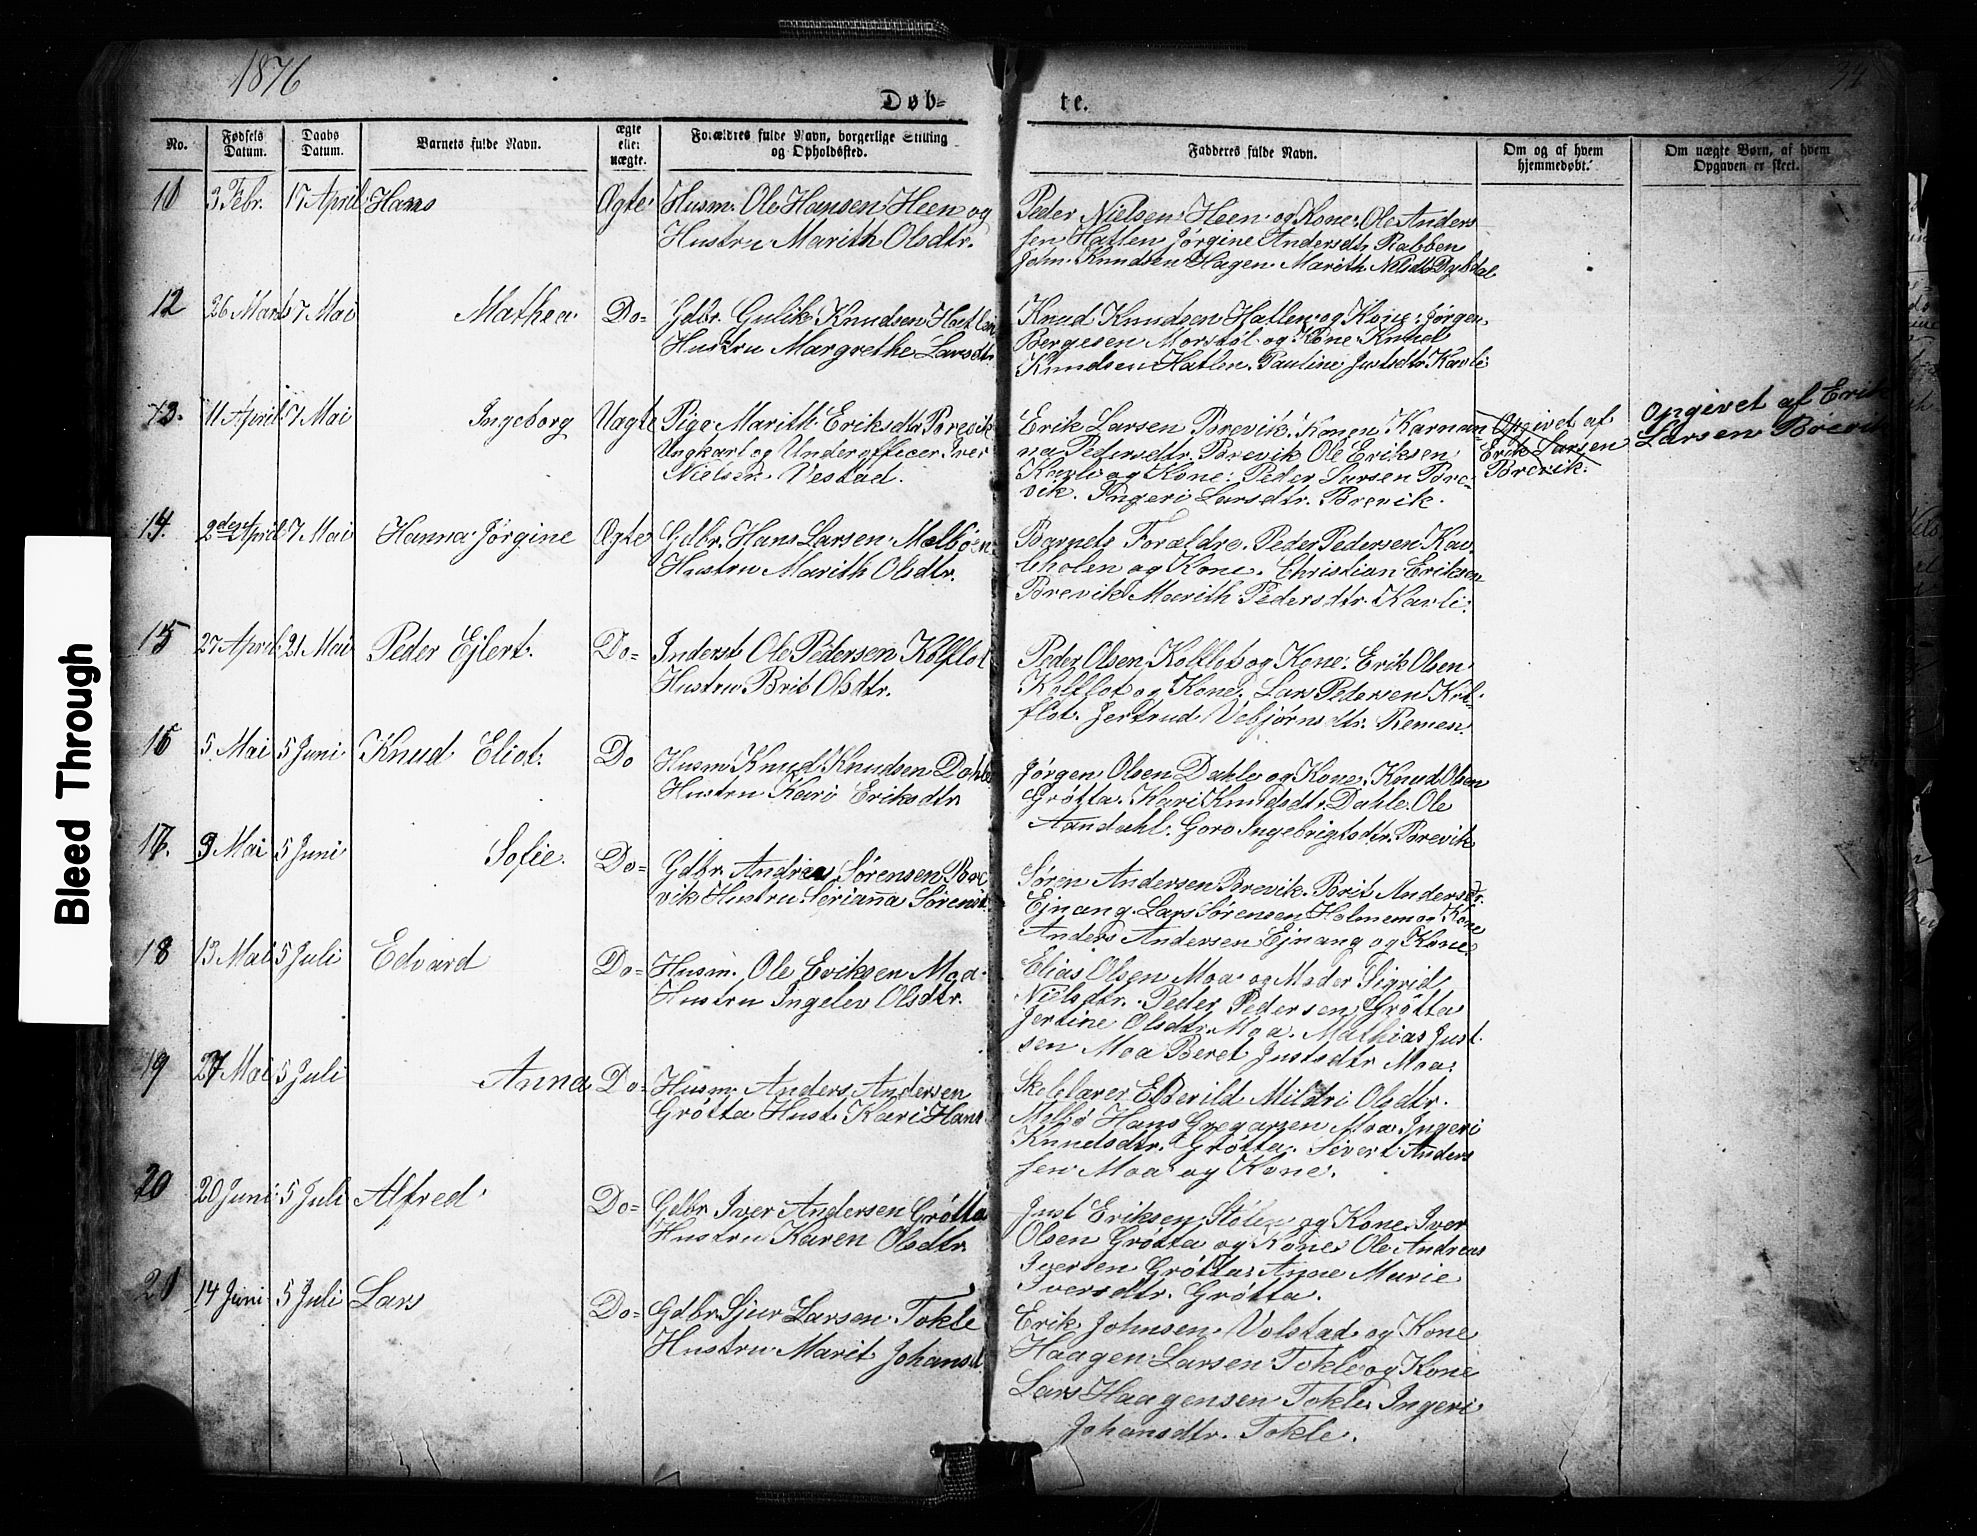 1876
Døb-
te.
No.
Fødsels Datum.
Daabs Datum.
Barnets fulde Navn.
ægte eller uægte.
Forældres fulde Navn, borgerlige Stilling og Opholdssted.
Fadderes fulde Navn.
Om og af hvem hjemmedøbt.
Om uægte Børn, af hvem Opgaven er skeet.
Bleed Through
3 Febr. 17 April Hans Ægte Husm. Ole Hansen Heen og
Hustru Marith Olsdtr.
Peder Nielsen Heen og Kone. Ole Anders
sen Hatlen Jørgine Andersdtr Rabben
John Knudsen Hagen Marith Nelsdtr Dybdal
12 26 Marts 7 Mai Mathea Do= Gdbr. Gulik Knudsen Hatlen
Hustru Margrethe Larsdtr
Knud Knudsen Hatlen og Kone. Jørgen
Bergesen Morstøl og Kone Knud
Knudsen Hatlen. Pauline Justsdtr Kavli
13. 11 April 7 Mai Ingeborg Uægte Pige Marith Eriksdtr Brevik
Ungkarl og Underofficer Iver
Nielsen Vestad.
Erik Larsen Brevik. Konen Karnan-
na Pedersdtr. Brevik Ole Eriksen
Kavli og Kone. Peder Larsen Bre-
vik. Ingeri Larsdtr. Brevik.
Opgivet af
Erik Larsen
Brevik.
Opgivet af Erik
Larsen Brevik
14. 2den April 7 Mai Hanna Jørgine Ægte Gdbr. Hans Larsen Melbøen
Hustru Marith Olsdtr.
Barnets Forældre. Peder Pedersen Kav-
liholen og Kone. Christian Eriksen
Brevik Marith Pedersdtr. Kavli.
15 27 April 21 Mai Peder Ejlert. Do= Inderst Ole Pedersen Kolflot
Hustru Brit Olsdtr.
Peder Olsen Kolflot og Kone. Erik Olsen
Kolflot og Kone. Lars Pedersen Kol-
flot. Jertrud Vebjørnsdtr. Remen.
16 5 Mai 5 Juni Knud Eliot. Do Husm Knud Knudsen Dahle
Hustru Kari Eriksdtr
Jørgen Olsen Dahle og Kone. Knud Olsen
Grøtta. Kari Knudsdtr. Dahle. Ole
Aandahl. Goro Ingebrigtsdtr. Brevik
17. 9 Mai 5 Juni Sofie. Do= Gdbr. Andreas Sørensen Bre
vik Hustru Serianna Sørensd.
Søren Andersen Brevik. Brit Andersdtr.
Ejnang. Lars Sørensen Holmem og Kone
Anders Andersen Ejnang og Kone.
18 13 Mai 5 Juli Edvard Do= Husm. Ole Eriksen Moa.
Hustru Ingelev Olsdtr.
Elias Olsen Moa og Moder Sigrid
Nielsdtr. Peder Pedersen Grøtta
Jertine Olsdtr. Moa. Mathias Just
sen Moa Beret Justsdtr Moa.
19 27 Mai 5 Juli Anna Do= Husm. Anders Andersen
Grøtta Hust. Kari Hans.
Skolelærer E Berild Mildri Olsdtr.
Melbø Hans Gregarsen Moa. Ingeri
Knudsdtr. Grøtta. Sivert Anders
sen Moa og Kone.
20 20 Juni 5 Juli Alfred Do= Gdbr Iver Andersen Grøtta
Hustru Karen Olsdtr
Just Eriksen Stølen og Kone. Iver
Olsen Grøtta og Kone Ole Andreas
Iversen Grøtta. Anne Marie
Iversdtr. Grøtta.
14 Juni 5 Juli Lars Do= Gdbr. Sjur Larsen Tokle
Hustru Marit Johansd
Erik Johnsen Volstad og Kone
Haagen Larsen Tokle og Kone
Lars Haagensen Tokle. Ingeri
Johansdtr. Tokle.